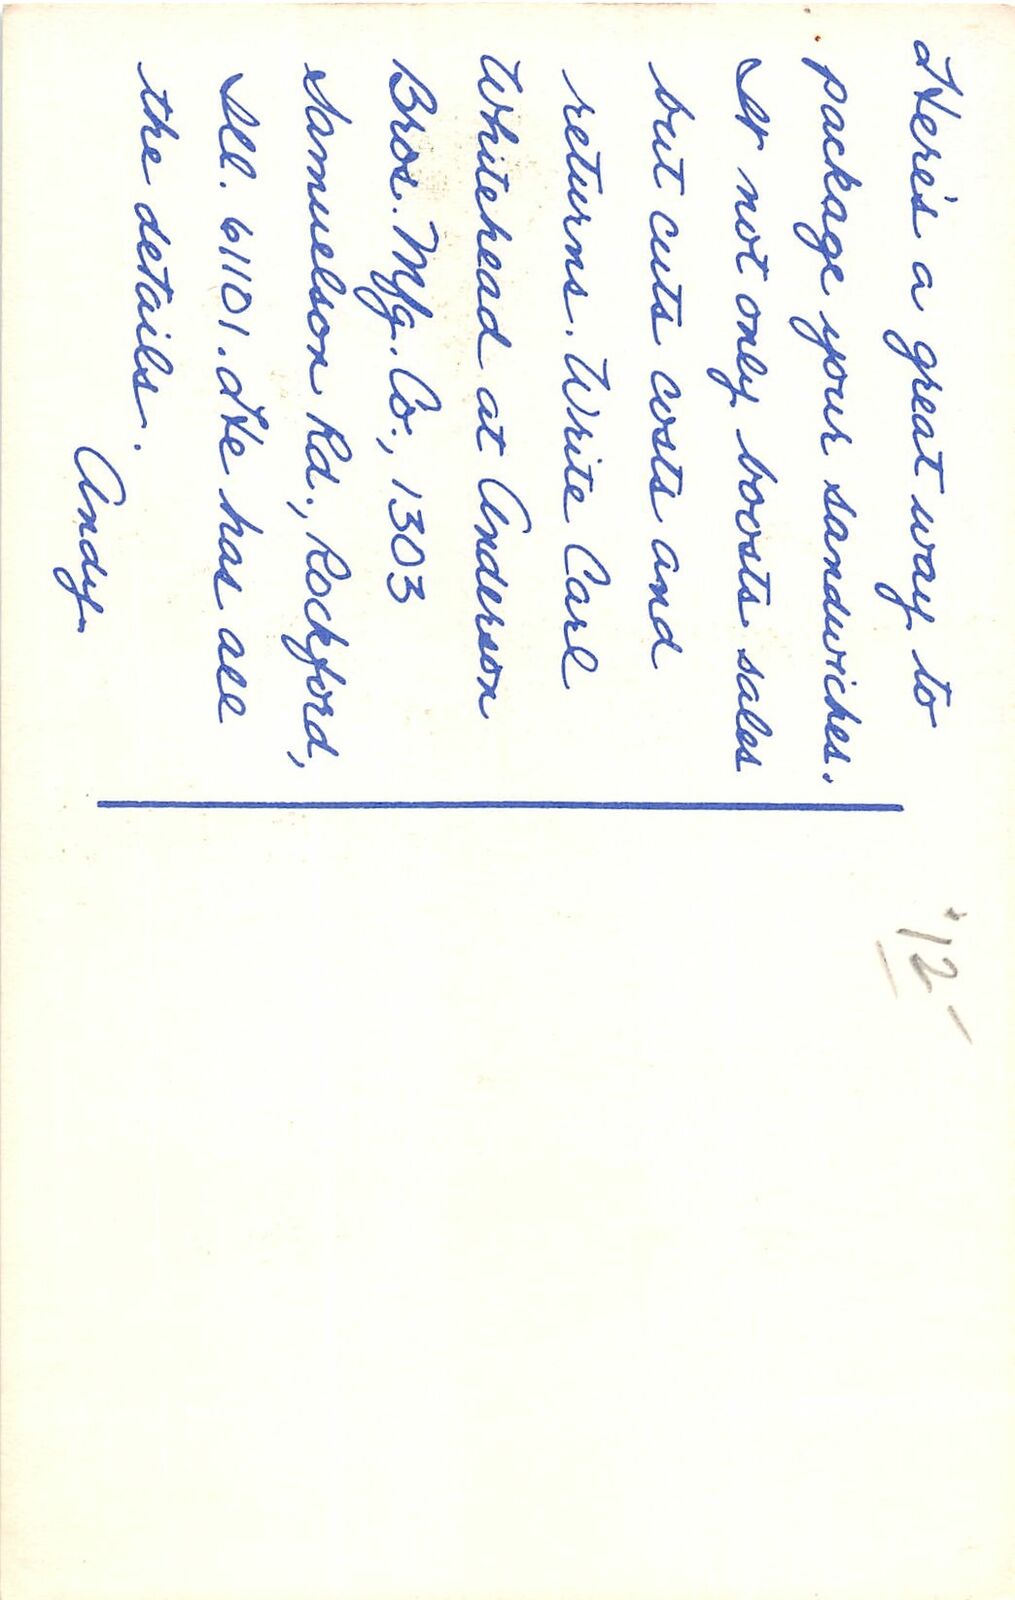 Here's a great way to
package your sandwiches.
It not only boosts sales
but cuts costs and
returns. Write Carl
Whitehead at Anderson
Bros. Mfg. Co., 1303
Samuelson Rd., Rockford,
Ill. 61101. He has all
the details.
Andy
'12-